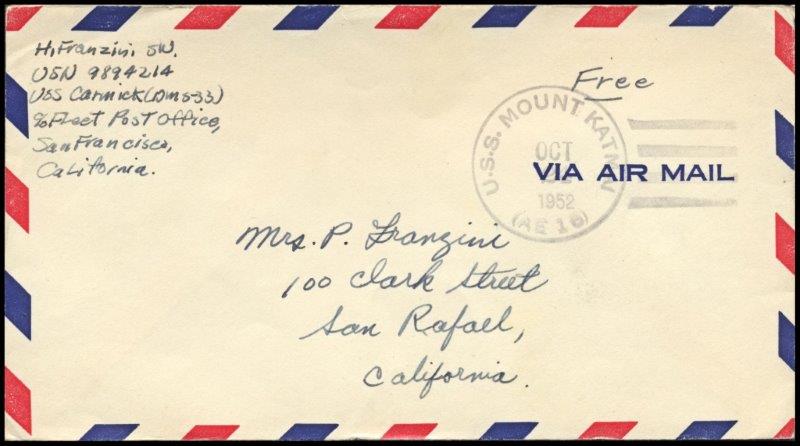 H. Franzini SN.
USN 9894214
USS Carmick (DMS-33)
% Fleet Post Office,
San Francisco,
California.
Free
U.S.S. MOUNT KATMAI
OCT
1952
(AE 16)
VIA AIR MAIL
Mrs. P. Franzini
100 Clark Street
San Rafael,
California.